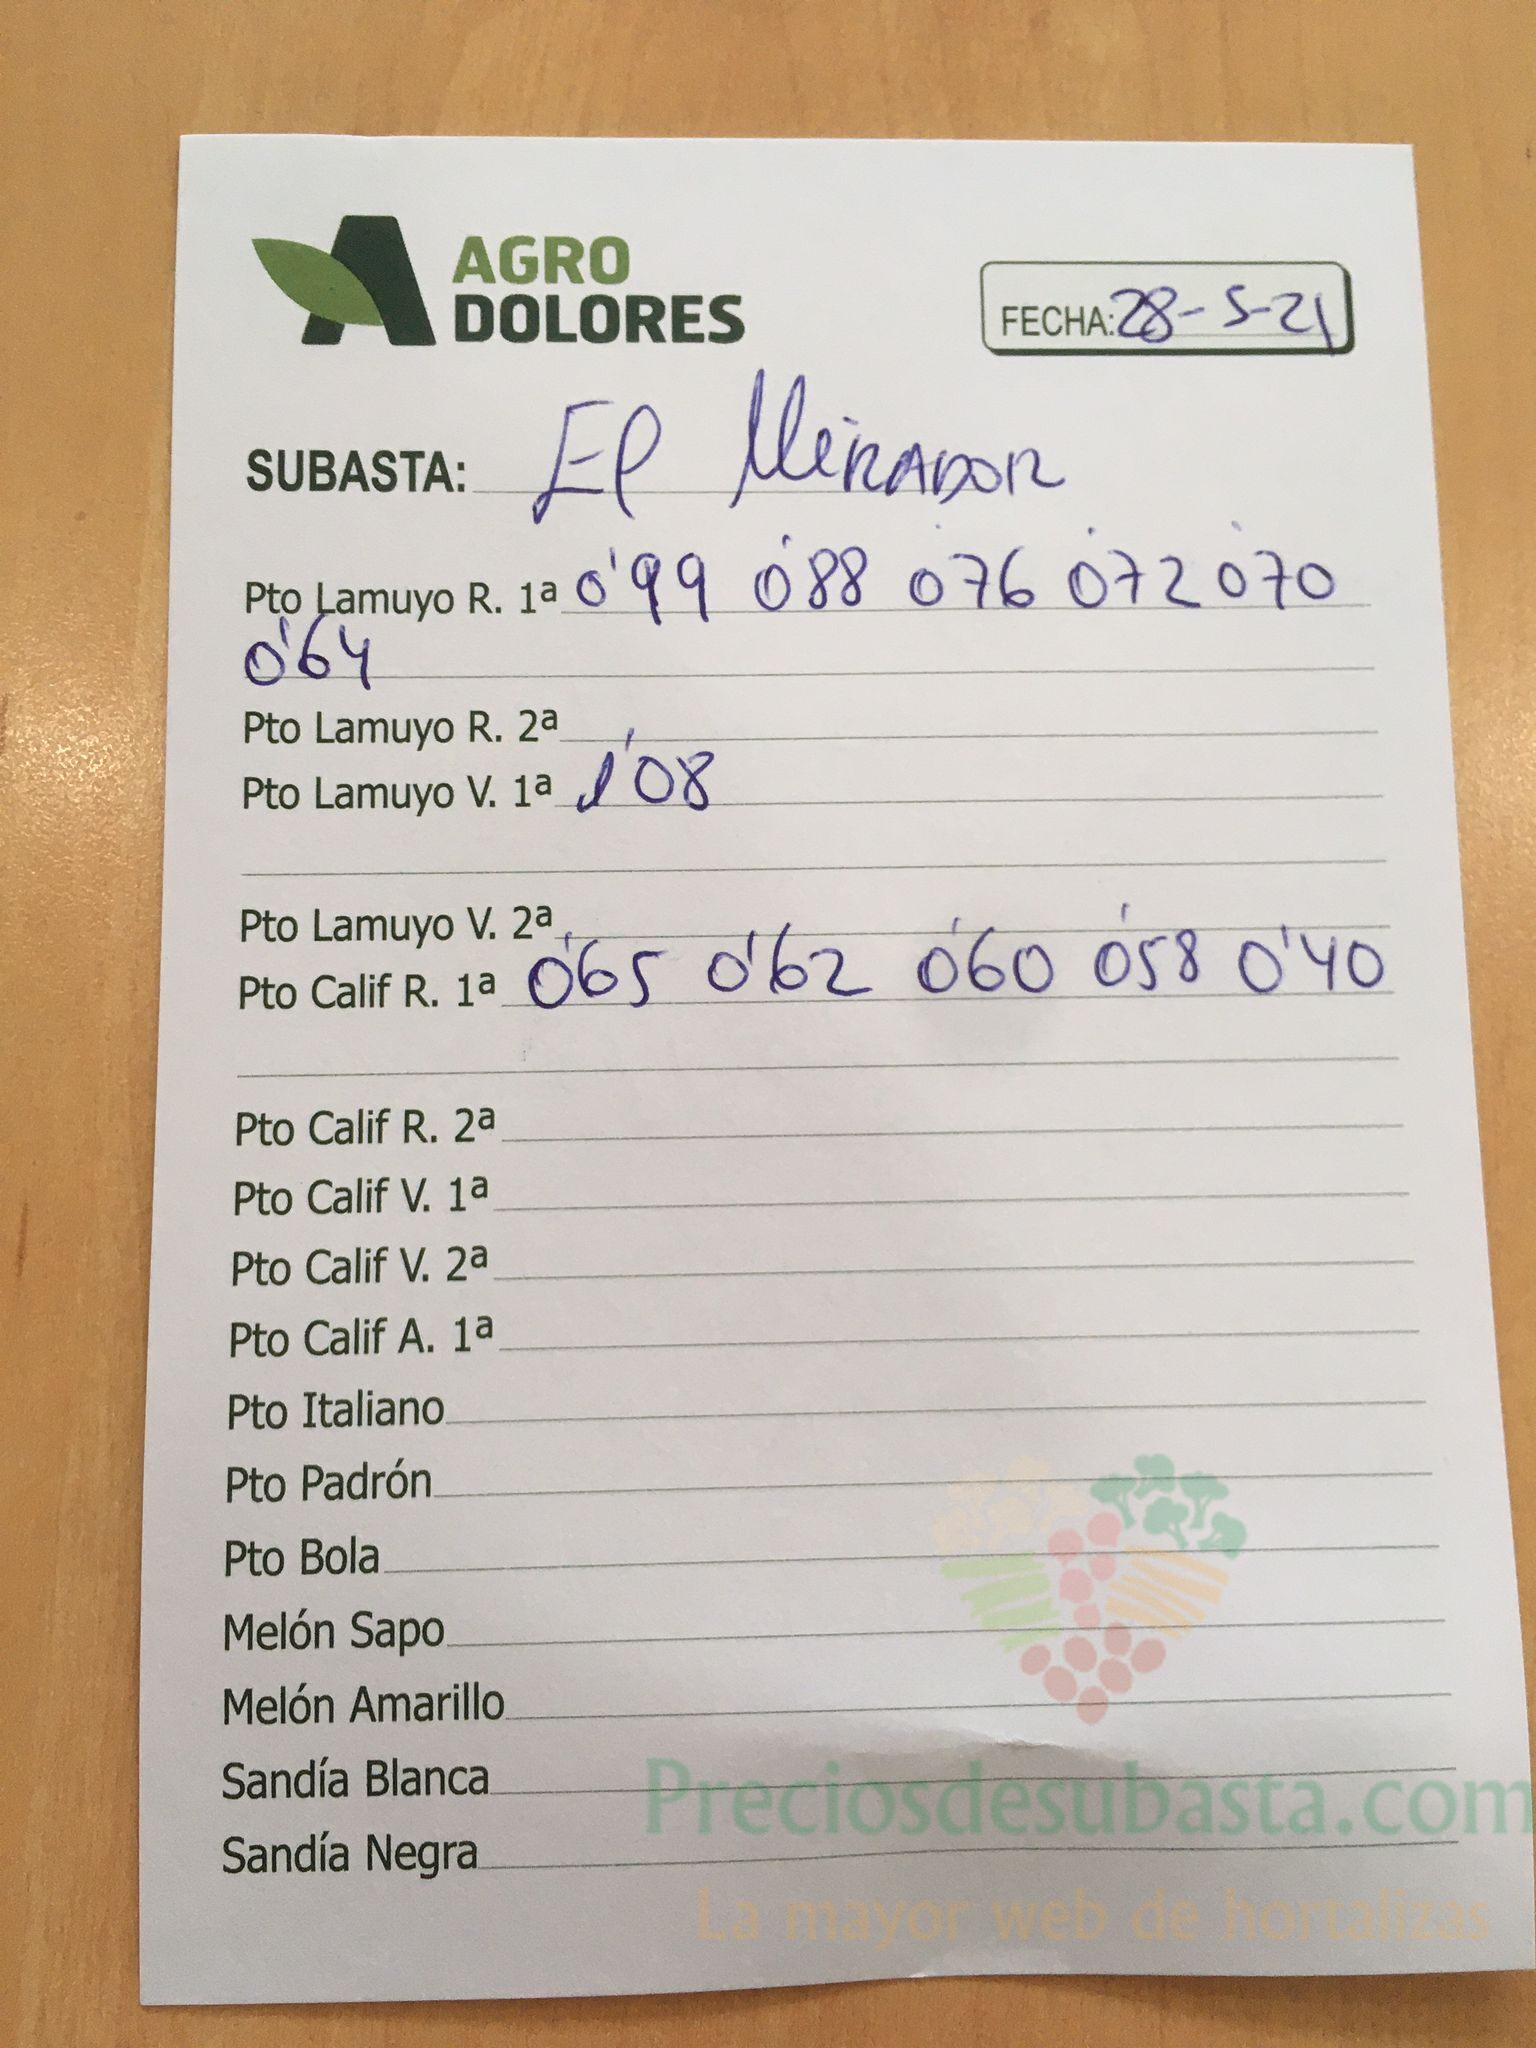 AGRO
DOLORES
FECHA: 28-5-21
SUBASTA: El Mirador
Pto Lamuyo R. 1ª 0'99 0'88 0'76 0'72 0'70
0'64
Pto Lamuyo R. 2ª
Pto Lamuyo V. 1ª 1'08
Pto Lamuyo V. 2ª
Pto Calif R. 1ª 0'65 0'62 0'60 0'58 0'40
Pto Calif R. 2ª
Pto Calif V. 1ª
Pto Calif V. 2ª
Pto Calif A. 1ª
Pto Italiano
Pto Padrón
Pto Bola
Melón Sapo
Melón Amarillo
Sandía Blanca
Sandía Negra
Preciosdesubasta.com
La mayor web de hortalizas